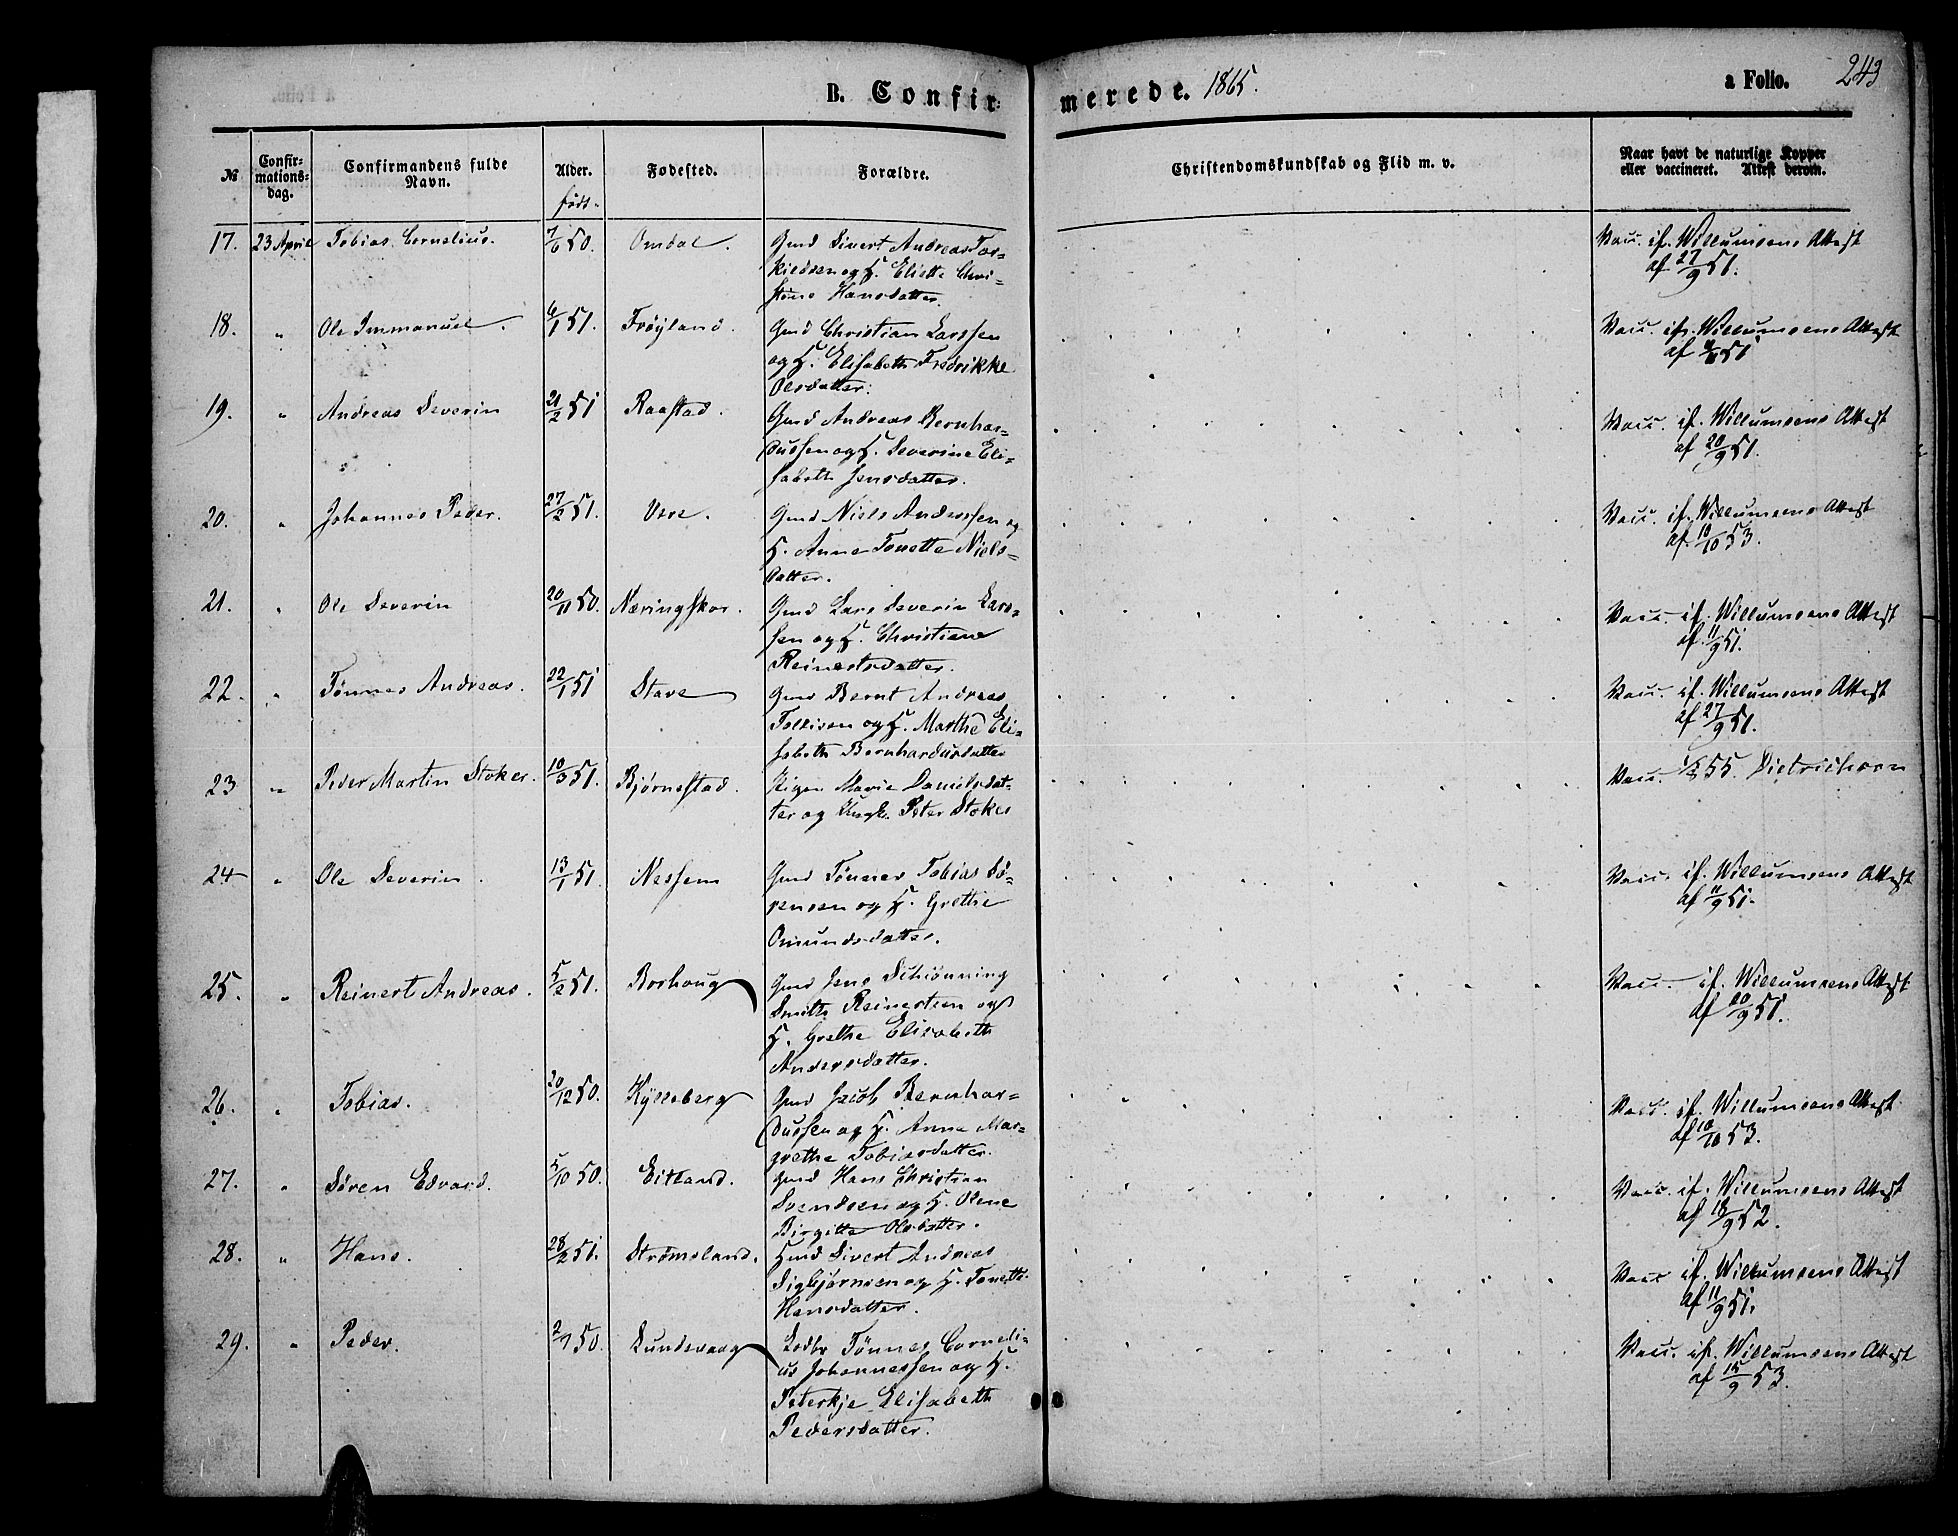 B. Confirmerede. 1865. a Folio. 243
№ Confirmationsdag. Confirmandens fulde Navn. Alder. født. Fødested. Forældre. Christendomskundskab og Flid m. v. Naar havt de naturlige Kopper eller vaccineret. Attest derom.
17. 23 April Tobias Cornelius. 7/6 50. Omdal. Gmd Sivert Andreas Tor- Vacc. if. Willumsens Attest
kildsen og H. Eliette Chri- af 27/9 51.
stine Hansdatter
18. " Ole Immanuel. 6/1 51. Frøyland. Gmd Christian Larssen Vacc. if. Willumsens Attest
og H. Elisabeth Fredrikke af 51
Olsdatter.
19. " Andreas Severin 21/2 51 Raastad. Gmd Andreas Bernhar- Vacc. if. Willumsens Attest
dussen og H. Severine Eli- af 20/9 51.
sabeth Jensdatter.
20. " Johannes Peder. 27/2 51. Vere. Gmd Niels Anderssen og Vacc. if. Willumsens Attest
H. Anne Tonette Niels- af 10/10 53.
datter.
21. " Ole Severin 20/11 50. Næringskor. Gmd Lars Severin Lars- Vacc. if. Willumsens Attest
sen og H. Christiane af 11/9 51.
Reinertsdatter.
22. " Tønnes Andreas. 22/1 51 Stave Gmd Bernt Andreas Vacc. if. Willumsens Attest
Tollisen og H. Marthe Eli- af 27/9 51.
sabeth Bernhardusdatter
23 " Peder Martin Stokes. 10/3 51. Bjørnestad. Pigen Marie Danielsdat- Vacc. 55. Dietrichson
ter og Ungk. Peter Stokes
24 " Ole Severin. 13/1 51. Nessem Gmd Tønnes Tobias Sø- Vacc. if. Willumsens Attest
rensen og H. Grethe af 11/9 51.
Omundsdatter.
25. " Reinert Andreas. 5/2 51. Borhaug Gmd Jens Schiønning Vacc. if. Willumsens Attest
Smith Reinertsen og af 20/9 51.
H. Grethe Elisabeth
Andersdatter.
26. " Tobias. 20/12 50. Hylleberg Gmd Jacob Bernhar- Vacc. if. Willumsens Attest
dussen og H. Anne Mar- af 10/10 53.
grethe Tobiasdatter.
27. " Søren Edvard. 5/10 50. Eitland. Gmd Hans Christian Vacc. if. Willumsens Attest
Svendsen og H. Olene af 18/9 52.
Birgitte Olsdatter.
28. " Hans. 28/2 51. Strømsland. Hmd Sivert Andreas Vacc if. Willumsens Attest
Sigbjørnsen og H. Tonette af 11/9 51.
Hansdatter.
29. " Peder. 2/7 50. Lundevaag Lodbr Tønnes Corneli- Vacc. if. Willumsens Attest
us Johannessen og H. af 15/9 53.
Peterkje Elisabeth
Pedersdatter.